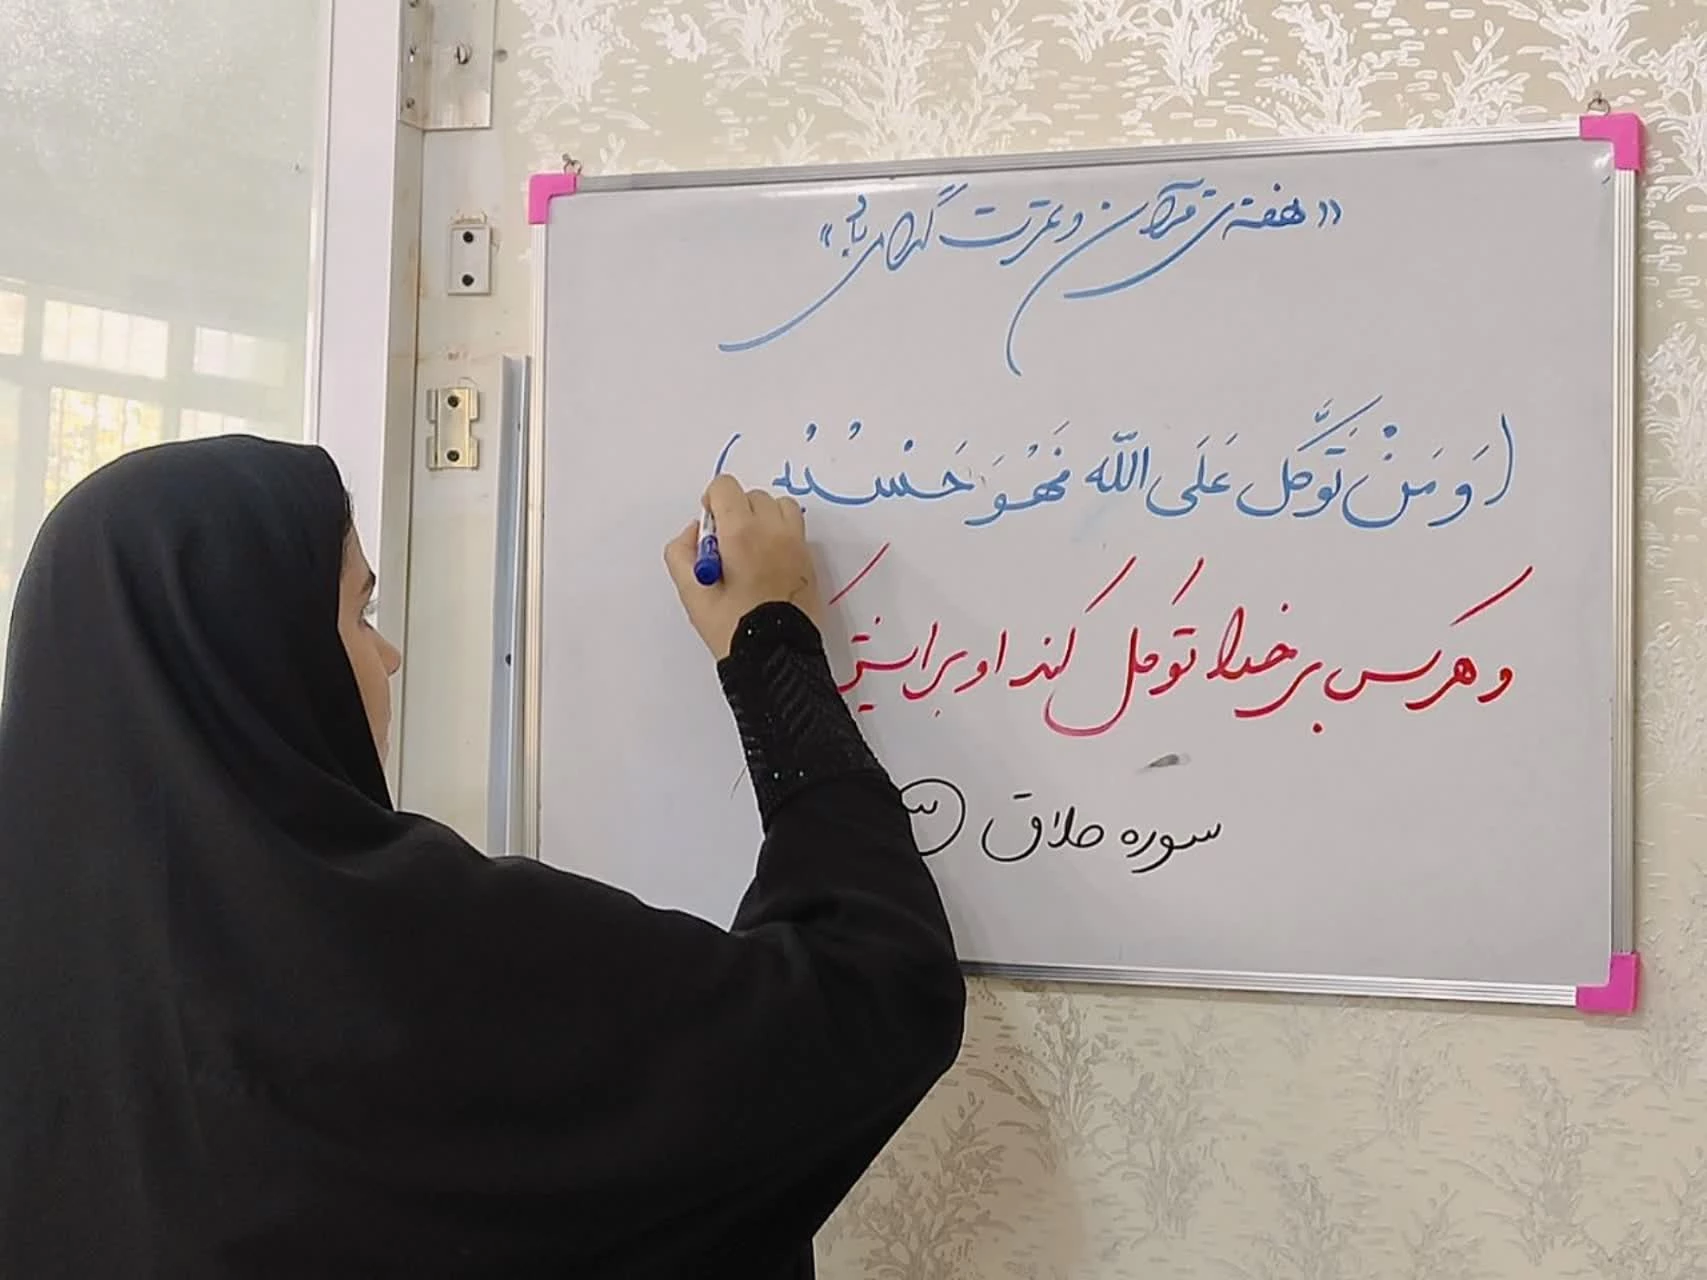 «هفته‌ی قرآن و عترت گرامی باد»
(وَ مَنْ تَوَكَّل عَلَى اللّه فَهُوَ حَسْبُهُ)
و هرکس بر خدا توکل کند او برایش
سوره طلاق ۳